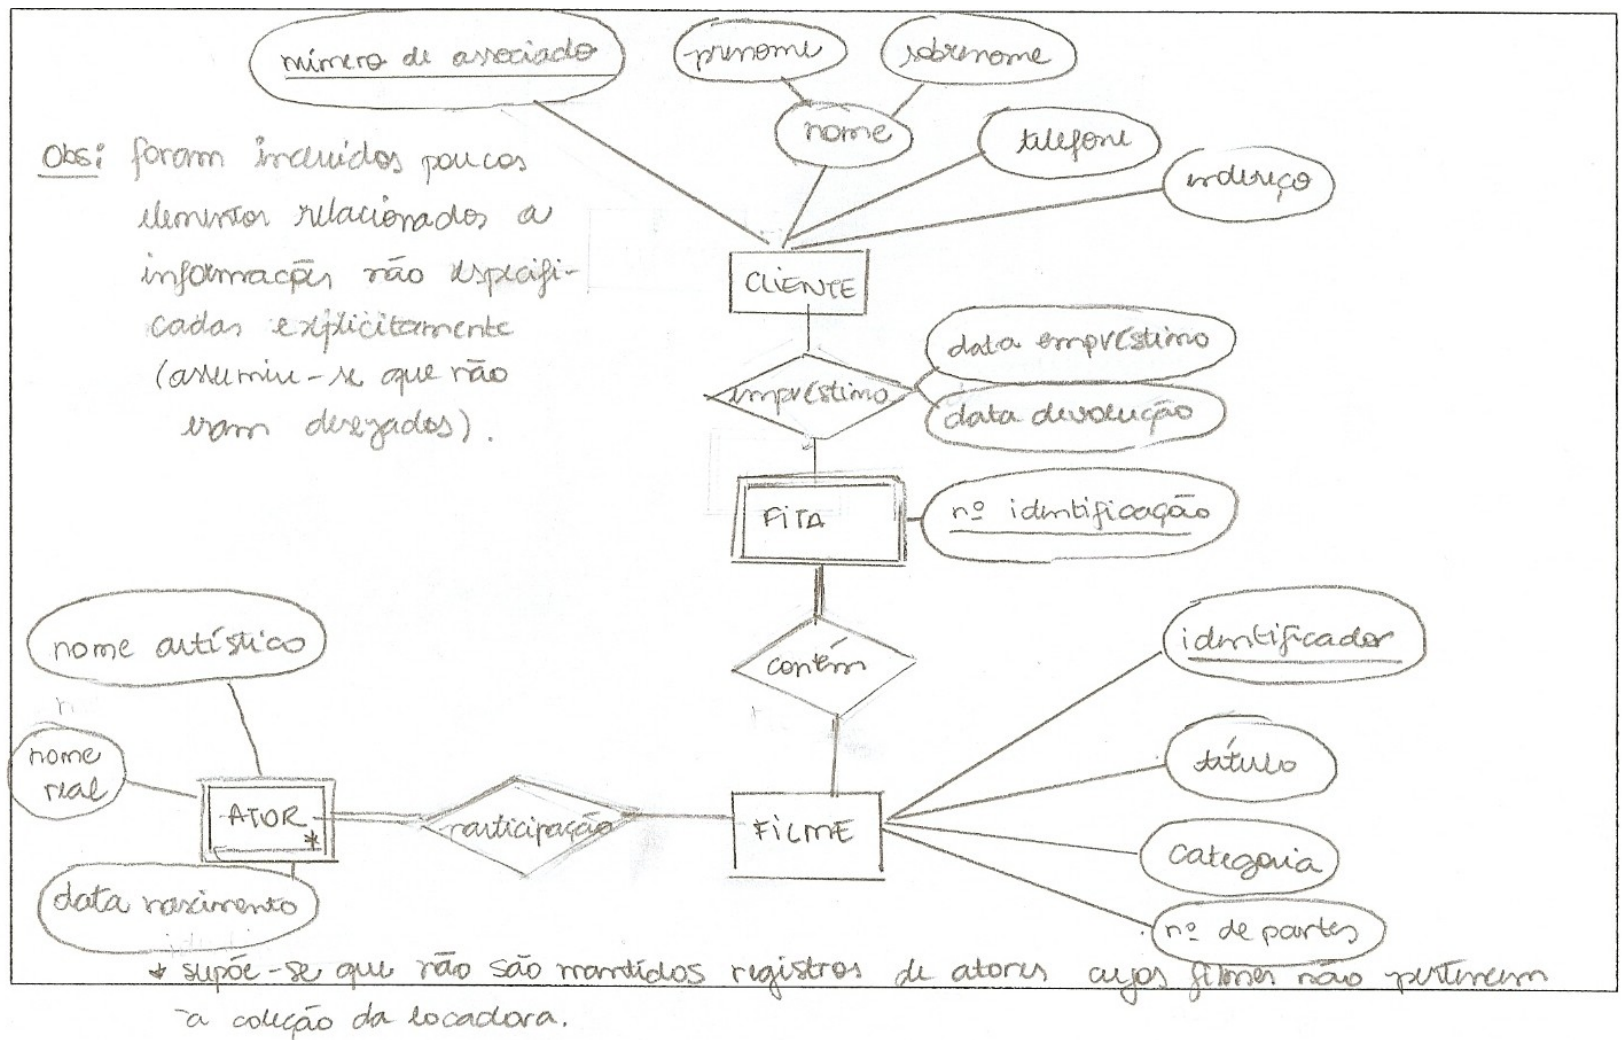 número de associado
prenome
sobrenome
nome
telefone
endereço
Obs: foram incluídos poucos
elementos relacionados a
informações não especifi-
cadas explicitamente
(assumiu-se que não
eram desejados).
CLIENTE
empréstimo
data empréstimo
data devolução
FITA
nº identificação
contém
nome artístico
nome
real
ATOR
*
data nascimento
participação
FILME
identificador
título
categoria
nº de partes
* supõe-se que não são mantidos registros de atores cujos filmes não pertencem
à coleção da locadora.